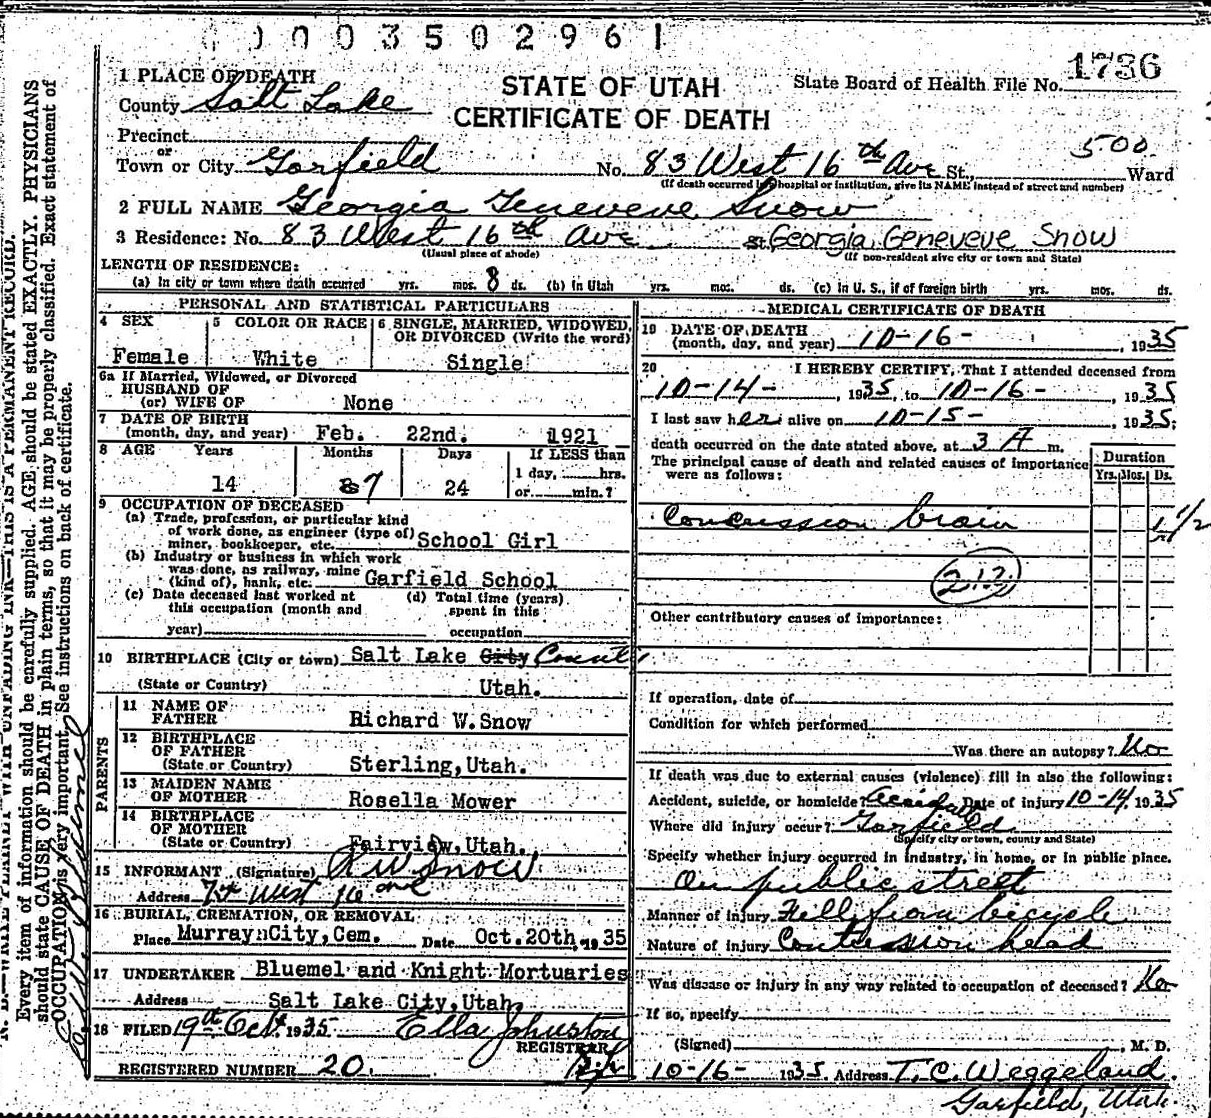 0003502961
1 PLACE OF DEATH
STATE OF UTAH
CERTIFICATE OF DEATH
State Board of Health File No. 1736
County Salt Lake
Precinct
or
Town or City Garfield No. 83 West 16th Ave St., 500 Ward
(If death occurred in hospital or institution, give its NAME instead of street and number)
2 FULL NAME Georgia Geneveve Snow
3 Residence: No. 83 West 16th Ave St. Georgia Geneveve Snow
(Usual place of abode) (If non-resident give city or town and State)
LENGTH OF RESIDENCE:
(a) In city or town where death occurred yrs. mos. 8 ds. (b) In Utah yrs. mos. ds. (c) in U. S., if of foreign birth yrs. mos. ds.
PERSONAL AND STATISTICAL PARTICULARS
4 SEX
Female
5 COLOR OR RACE
White
6 SINGLE, MARRIED, WIDOWED, OR DIVORCED (Write the word)
Single
6a If Married, Widowed, or Divorced
HUSBAND OF
(or) WIFE OF None
7 DATE OF BIRTH
(month, day, and year) Feb. 22nd. 1921
8 AGE Years Months Days If LESS than
14 8 7 24 1 day, hrs.
or min.?
9 OCCUPATION OF DECEASED
(a) Trade, profession, or particular kind
of work done, as engineer (type of)
miner, bookkeeper, etc. School Girl
(b) Industry or business in which work
was done, as railway, mine
(kind of), bank, etc. Garfield School
(c) Date deceased last worked at
this occupation (month and
year)
(d) Total time (years)
spent in this
occupation
10 BIRTHPLACE (City or town) Salt Lake City County
(State or Country) Utah.
PARENTS
11 NAME OF
FATHER Richard W. Snow
12 BIRTHPLACE
OF FATHER
(State or Country) Sterling, Utah.
13 MAIDEN NAME
OF MOTHER Rosella Mower
14 BIRTHPLACE
OF MOTHER
(State or Country) Fairview, Utah.
15 INFORMANT (Signature) R W Snow
Address West 16 ave
16 BURIAL, CREMATION, OR REMOVAL
Place Murray City, Cem. Date Oct. 20th, 1935
17 UNDERTAKER Bluemel and Knight Mortuaries
Address Salt Lake City, Utah,
18 FILED 19th Oct. 1935 Ella Johnston
REGISTRAR
REGISTERED NUMBER 20.
MEDICAL CERTIFICATE OF DEATH
19 DATE OF DEATH
(month, day, and year) 10-16-, 1935
20 I HEREBY CERTIFY, That I attended deceased from
10-14-, 1935, to 10-16-, 1935
I last saw her alive on 10-15-, 1935;
death occurred on the date stated above, at 3 A m.
The principal cause of death and related causes of importance
were as follows:
Duration
Yrs. Mos. Ds.
Concussion brain 1 1/2
212
Other contributory causes of importance:
If operation, date of
Condition for which performed
Was there an autopsy? No
If death was due to external causes (violence) fill in also the following:
Accident, suicide, or homicide? Accidental Date of injury 10-14, 1935
Where did injury occur? Garfield
(Specify city or town, county and State)
Specify whether injury occurred in Industry, in home, or in public place.
On public street
Manner of injury Fell from bicycle
Nature of injury Contussion head
Was disease or injury in any way related to occupation of deceased? No
If so, specify
(Signed) , M. D.
10-16- 1935. Address T. C. Weggeland.
Garfield, Utah.
Every item of information should be carefully supplied. AGE should be stated EXACTLY. PHYSICIANS
should state CAUSE OF DEATH in plain terms, so that it may be properly classified. Exact statement of
OCCUPATION is very important. See instructions on back of certificate.